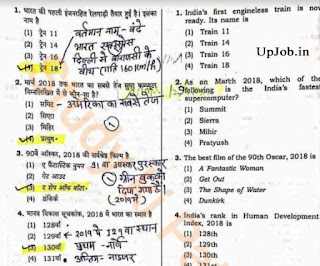 1. भारत की पहली इंजनरहित रेलगाड़ी तैयार हुई है। इसका
नाम है
(1) ट्रेन 11
(2) ट्रेन 14
(3) ट्रेन 16
(4) ट्रेन 18
वर्तमान नाम - वंदे
भारत एक्सप्रेस
दिल्ली से वाराणसी के
बीच (गति 160 km/h)
2. मार्च 2018 तक भारत का सबसे तेज
निम्नलिखित में से कौन-सा है?
(1) समिट - अमेरिका का सबसे तेज
(2) सिएरा
(3) मिहिर
(4) प्रत्यूष
3. 90वीं ऑस्कर, 2018 की सर्वश्रेष्ठ फिल्म है
(1) ए फैंटास्टिक वूमन
(2) गेट आउट
(3) द शेप ऑफ वॉटर
(4) डंकर्क
91 वा ऑस्कर पुरस्कार
ग्रीन बुक को
दिया गया है
(2019 में)
4. मानव विकास सूचकांक, 2018 में भारत का स्थान है
(1) 128वाँ
(2) 129वाँ
(3) 130वाँ
(4) 131वाँ
2019 में 129 वा स्थान
प्रथम - नार्वे
अन्तिम - नाइजर
1. India's first engineless train is now
ready. Its name is
(1) Train 11
(2) Train 14
(3) Train 16
(4) Train 18
UpJob.in
2. As on March 2018, which of the
following is the India's fastest
supercomputer?
(1) Summit
(2) Sierra
(3) Mihir
(4) Pratyush
3. The best film of the 90th Oscar, 2018 is
(1) A Fantastic Woman
(2) Get Out
(3) The Shape of Water
(4) Dunkirk
4. India's rank in Human Development
Index, 2018 is
(1) 128th
(2) 129th
(3) 130th
(4) 131st